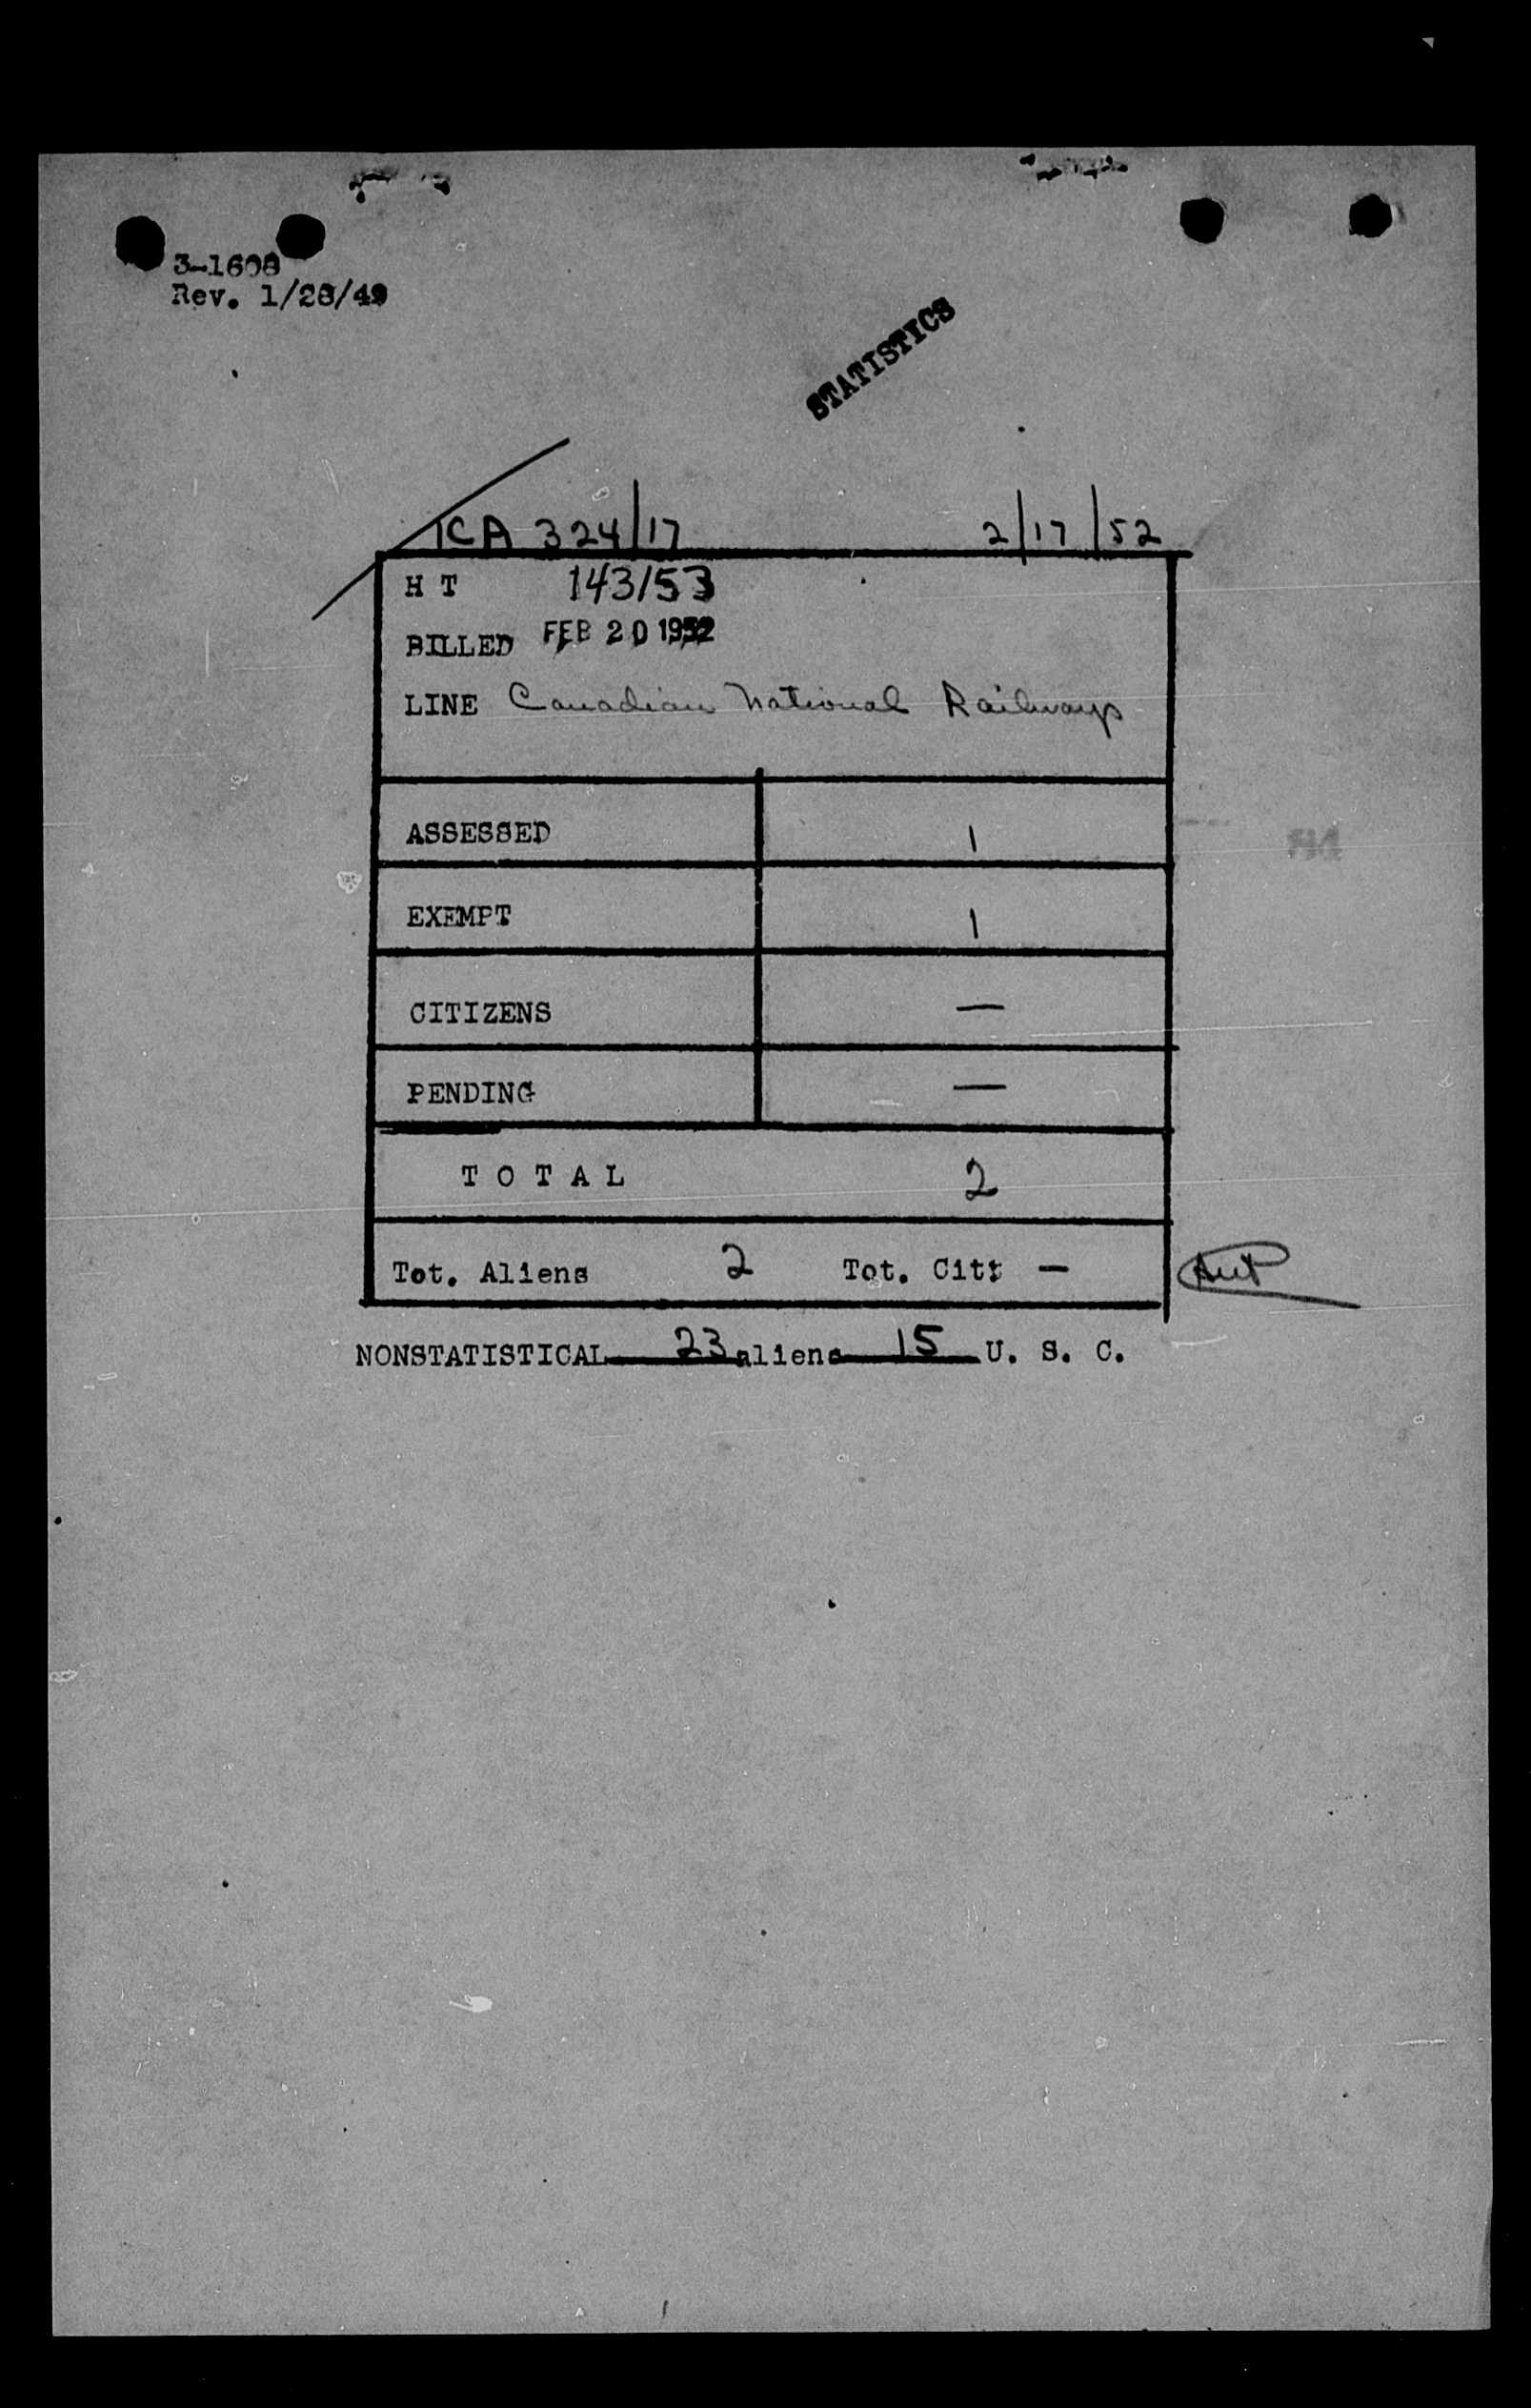 3-1608
Rev. 1/28/49
STATISTICS
TCA 324/17 2/17/52
H T 143/53
BILLED FEB 20 1952
LINE Canadian National Railways
ASSESSED 1
EXEMPT 1
CITIZENS —
PENDING —
T O T A L 2
Tot. Aliens 2 Tot. Citz —
NONSTATISTICAL 23 aliens 15 U. S. C.